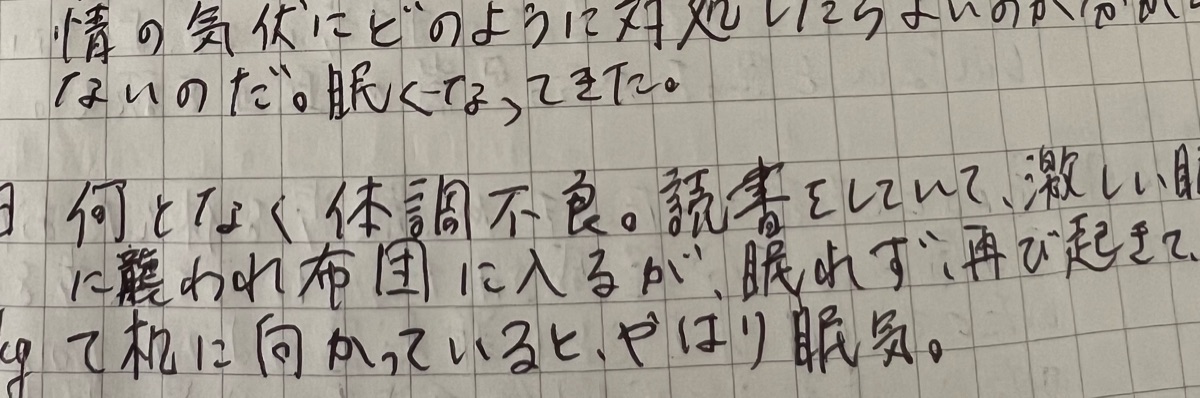 情の気伏にどのように対処したらよいのか
ないのだ。眠くなってきた。
日 何となく体調不良。読書をしていて、激しい眠
に襲われ布団に入るが、眠れず、再び起きて、
kg て机に向かっていると、やはり眠気。